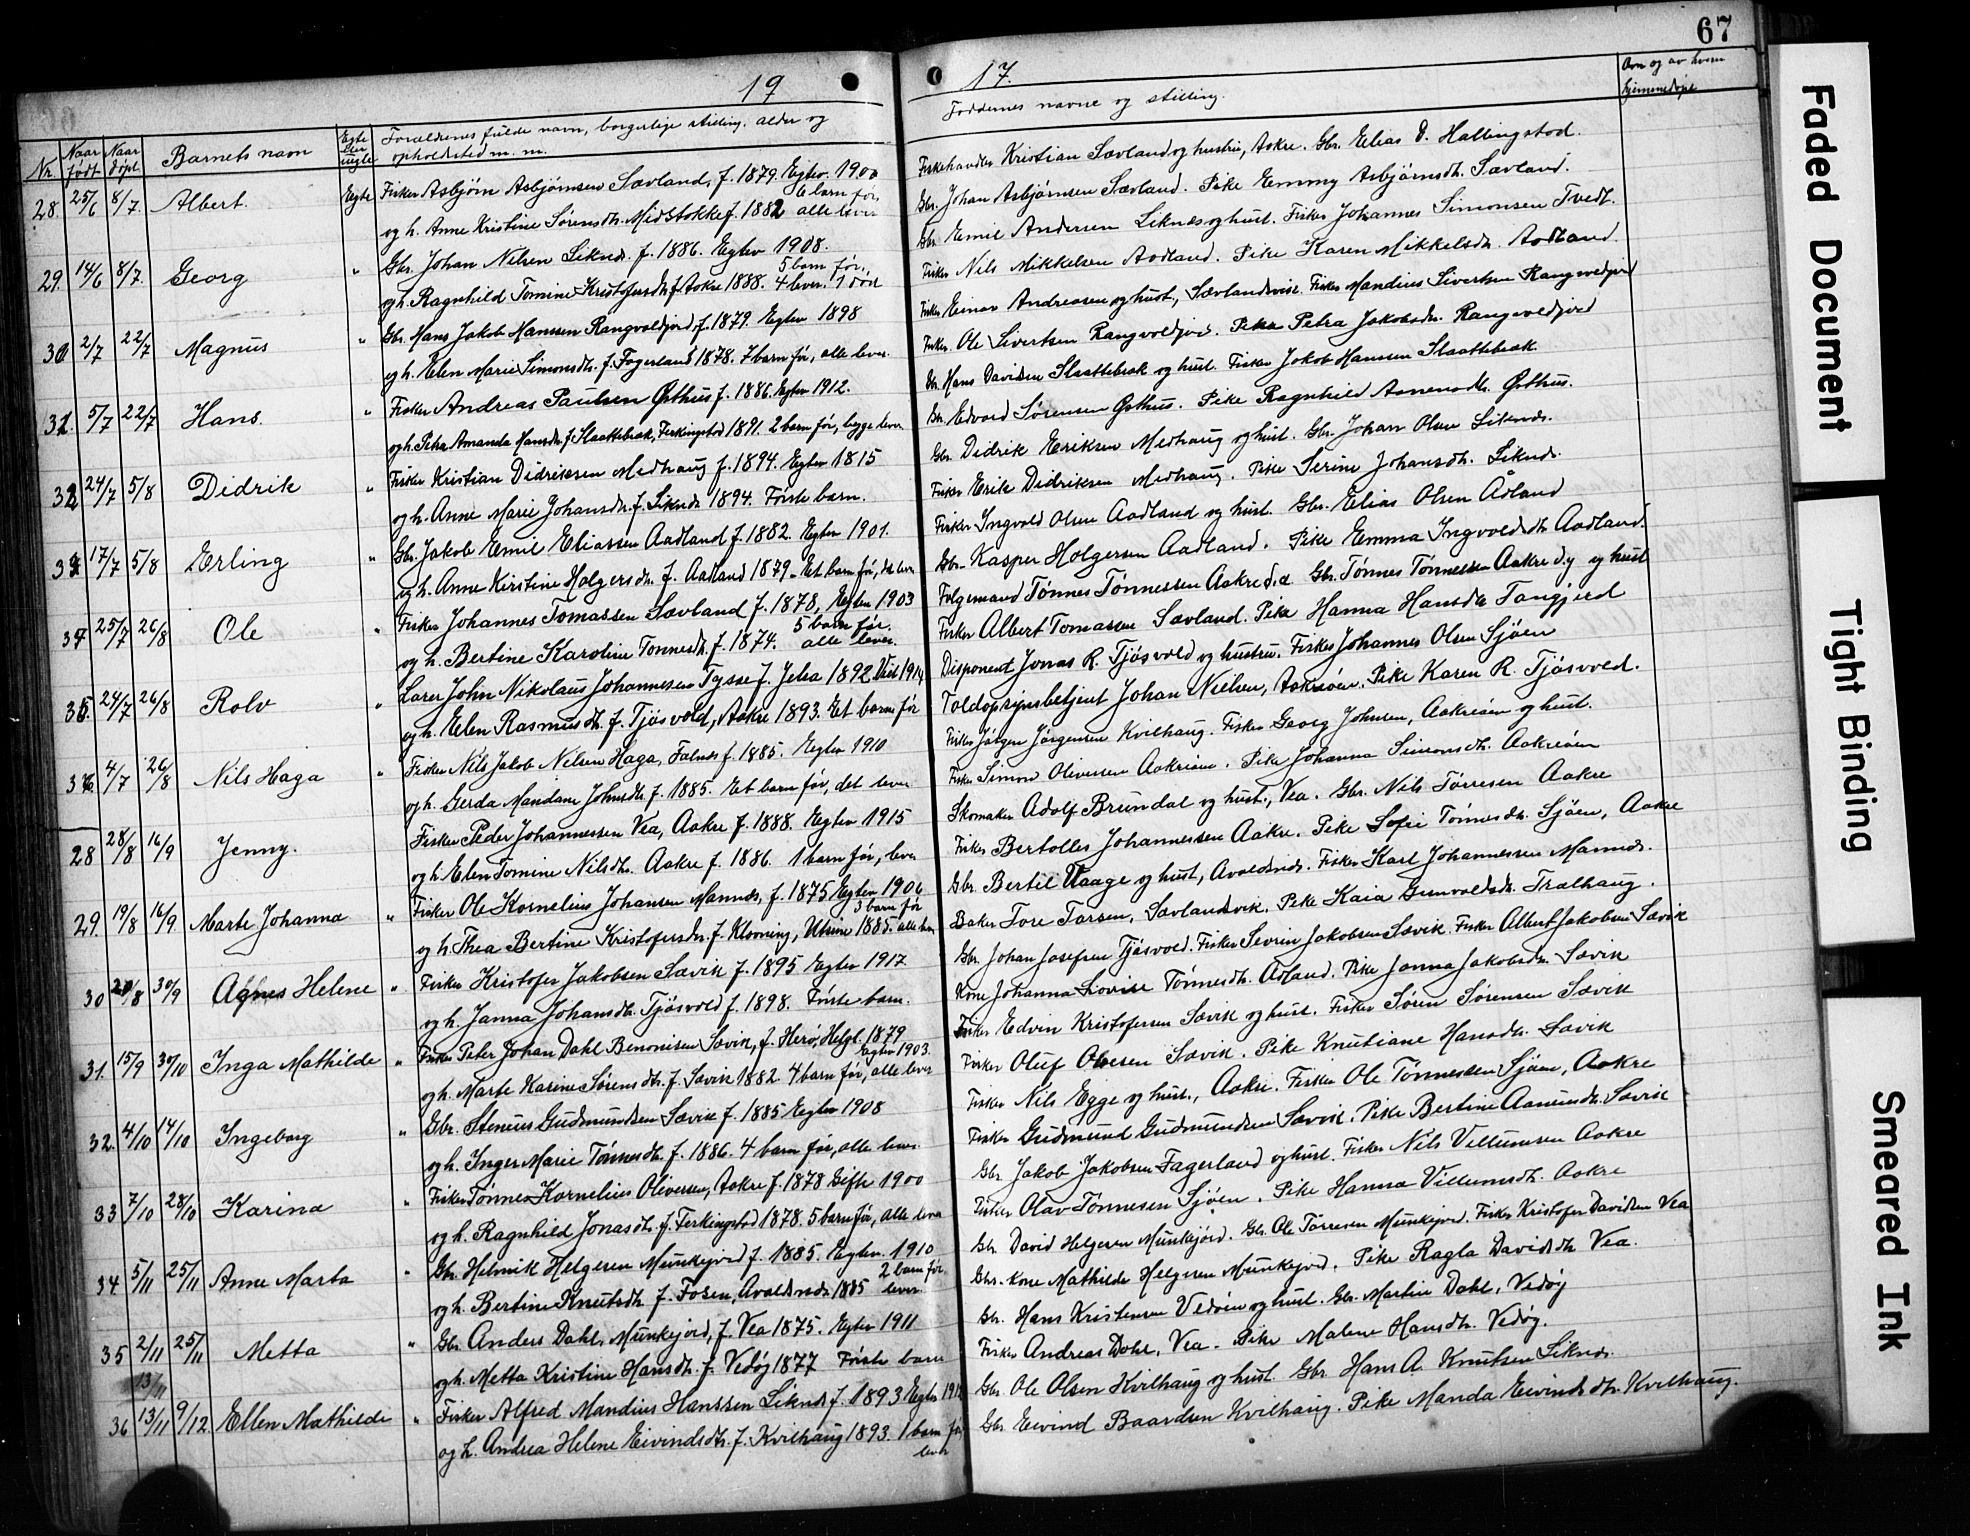 67
19
17.
Nr.
Naar født
Naar døpt
Barnets navn
Egte eller uegte
Forældrenes fulde navn, borgerlige stilling, alder og
opholdsted m. m.
Faddernes navne og stilling.
hjemmedøpt
28. 25/6 8/7. Albert. Egte Fisker Asbjørn Asbjørnsen Sævland, f. 1879. Egtev. 1900 6 barn før,
og h. Anne Kristine Sørensdtr. Midstokke f. 1882 alle lever
Fiskehandler Kristian Sævland og hustru, Aakre. Gbr. Elias D. Hallingstad.
Gbr. Johan Asbjørnsen Sævland. Pike Emmy Asbjørnsdtr. Sævland.
29. 14/6 8/7. Georg " Gbr. Johan Nilsen Liknes f. 1886. Egtev 1908. 5 barn før.
og h. Ragnhild Tomine Kristofersdtr. f. Aakre 1888. 4 lever. 1 død
Gbr. Emil Andersen Liknes og hust. Fisker Johannes Simonsen Tvedt.
Fisker Nils Mikkelsen Aadland. Pike Karen Mikkelsdtr. Aadland.
30 2/7 22/7 Magnus " Gbr. Hans Jakob Hansen Rangvoldjord, f. 1879. Egtev 1898
og h. Elen Marie Simonsdtr. f. Fagerland 1878. 7 barn før, alle lever.
Fisker Einar Andreasen og hust, Sævlandsvik. Fisker Mandius Sivertsen Rangvoldjord
Fisker Ole Sivertsen Rangvoldjord. Pike Petra Jakobsdtr. Rangvoldjord
31. 5/7 22/7 Hans. " Fisker Andreas Paulsen Østhus f. 1886. Egtev 1912.
og h. Petra Amanda Hansdtr. f. Slaattebrak, Ferkingstad 1891. 2 barn før, begge lever
Gbr. Hans Davidsen Slaattebrak og hust. Fisker Jakob Hansen Slaattebrak
Gbr. Edvard Sørensen Østhus. Pike Ragnhild Asmundsdtr. Østhus.
32 24/7 5/8 Didrik " Fisker Kristian Didriksen Medhaug f. 1894. Egtev 1815
og h. Anne Marie Johansdtr. f. Liknes 1894. Første barn.
Gbr. Didrik Eriksen Medhaug og hust. Gbr. Johan Olsen Liknes.
Fisker Erik Didriksen Medhaug. Pike Serine Johansdtr. Liknes.
33 17/7 5/8 Erling " Gbr. Jakob Emil Eliassen Aadland f. 1882. Egtev 1901.
og h. Anne Kirstine Holgersdtr. f. Aadland 1879. Et barn før, det lever
Fisker Ingvald Olsen Aadland og hust. Gbr. Elias Olsen Ådland
Gbr. Kasper Holgersen Aadland. Pike Emma Ingvoldsdtr. Aadland.
34 25/7 26/8 Ole " Fisker Johannes Tomassen Sævland f. 1878, Egtev 1903 5 barn før.
og h. Bertine Karoline Tønnesdtr. f. 1874. alle lever.
Følgemand Tønnes Tønnessen Aakre d.e Gbr. Tønnes Tønnessen Aakre d.y og hust
Fisker Albert Tomassen Sævland. Pike Hanna Hansdtr. Tangjerd
35. 24/7 26/8 Rolv " Lærer John Nikolaus Johannesen Tysse f. Jelsa 1892 Viet 1914
og h. Elen Rasmusdtr. f. Tjøsvold, Aakre 1893. Et barn før
Disponent Jonas R. Tjøsvold og hustru. Fisker Johannes Olsen Sjøen
Toldopsynsbetjent Johan Nielsen, Aakreøen. Pike Karen R. Tjøsvold.
36. 4/7 26/8 Nils Haga " Fisker Nils Jakob Nelsen Haga, Falnes f. 1885. Egtev 1910
og h. Gerda Mandane Johnsdtr. f. 1885. Et barn før, det lever
Fisker Jørgen Jørgensen Kvilhaug. Fisker Georg Johnsen, Aakreøen og hust.
Fisker Simon Oliversen Aakreøen. Pike Johanna Simonsdtr. Aakreøen
28 28/8 16/9 Jenny. Fisker Peder Johannessen Vea, Aakre f. 1888. Egtev 1915
og h. Elen Tomine Nilsdtr. Aakre f. 1886. 1 barn før, lever
Skomaker Adolf Brundal og hust., Vea. Gbr. Nils Tørresen Aakre
Fisker Bertolles Johannessen Aakre. Pike Sofie Tønnesdtr. Sjøen, Aakre
29. 19/8 16/9 Marte Johanna " Fisker Ole Kornelius Johansen Mannes, f. 1875 Egtev 1906 3 barn før
og h. Thea Bertine Kristofersdtr. f. Klovning, Utsire 1885. alle lever
Gbr. Bertil Vaage og hust, Avaldsnes. Fisker Karl Johannessen Mannes.
Baker Tore Tarsen, Sævlandsvik. Pike Kaia Gunvaldsdtr. Tralhaug.
30 20/8 30/9 Agnes Helene " Fisker Kristofer Jakobsen Sævik f. 1895 Egtev 1917
og h. Janna Johansdtr. Tjøsvold f. 1898. Første barn.
Gbr. Johan Josefsen Tjøsvold. Fisker Sevrin Jakobsen Sævik. Fisker Albert Jakobsen Sævik
Kone Johanna Lovise Tønnesdtr. Adland. Pike Janna Jakobsdtr. Sævik
31. 15/9 30/10 Inga Mathilde " Fisker Peter Johan Dahl Benonisen Sævik, f. Herø, Helgl. 1879 Egtev 1903.
og h. Marte Karine Sørensdtr. f. Sævik 1882. 4 barn før, alle lever
Fisker Edvin Kristofersen Sævik og hust. Fisker Søren Sørensen Sævik
Fisker Oluf Olsen Sævik. Pike Knutiane Hansdtr. Sævik
32. 4/10 14/10 Ingeborg " Gbr. Stenius Gudmundsen Sævik f. 1885 Egtev 1908
og h. Inger Marie Tønnesdtr. f. 1886. 4 barn før, alle lever.
Fisker Nils Egge og hust., Aakre. Fisker Ole Tønnessen Sjøen, Aakre
Fisker Gudmund Gudmundsen Sævik. Pike Bertine Aamundsdtr. Sævik
33 7/10 28/10 Karina " Fisker Tønnes Kornelius Oliversen, Aakre f. 1878 Gifte 1900
og h. Ragnhild Jonasdtr. f. Ferkingstad 1878. 5 barn før, alle lever
Gbr. Jakob Jakobsen Fagerland og hust. Fisker Nils Villumsen Aakre
Fisker Olav Tønnesen Sjøen. Pike Hanna Villumsdtr. Aakre
34 5/11 25/11 Anne Marta " Gbr. Helmik Helgesen Munkejord f. 1885. Egtev. 1910 2 barn før,
og h. Bertine Knutsdtr. f. Fosen, Avaldsnes 1885 lever.
Gbr. David Helgesen Munkejord. Gbr. Ole Tørresen Munkejord. Fisker Kristofer Davidsen Vea
Gbr.-kone Mathilde Helgesen Munkejord. Pike Ragla Davidsdtr. Vea.
35 2/11 25/11 Metta " Gbr. Anders Dahl, Munkejord, f. Vea 1875. Egtev 1911
og h. Metta Kristine Hansdtr. f. Vedøy 1877 Første barn
Gbr. Hans Kristensen Vedøien og hust. Gbr. Martin Dahl, Vedøy
Fisker Andreas Dahl, Vea. Pike Malene Hansdtr. Vedøy.
36 13/11 9/12. Ellen Mathilde " Fisker Alfred Mandius Hanssen Liknes f. 1893 Egtev 1912
og h. Andrea Helene Eivindsdtr. f. Kvilhaug 1893. 1 barn før, lever
Gbr. Ole Olsen Kvilhaug og hust. Gbr Hans A. Knutsen Liknes.
Gbr Eivind Baardsen Kvilhaug. Pike Manda Eivindsdtr. Kvilhaug.
Faded Document
Tight Binding
Smeared Ink